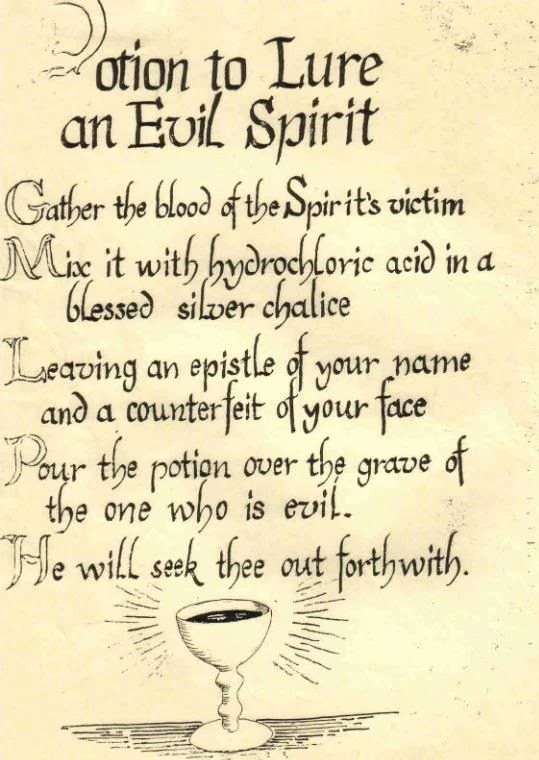 Potion to Lure
an Evil Spirit
Gather the blood of the Spirit's victim
Mix it with hydrochloric acid in a
blessed silver chalice
Leaving an epistle of your name
and a counterfeit of your face
Pour the potion over the grave of
the one who is evil.
He will seek thee out forthwith.